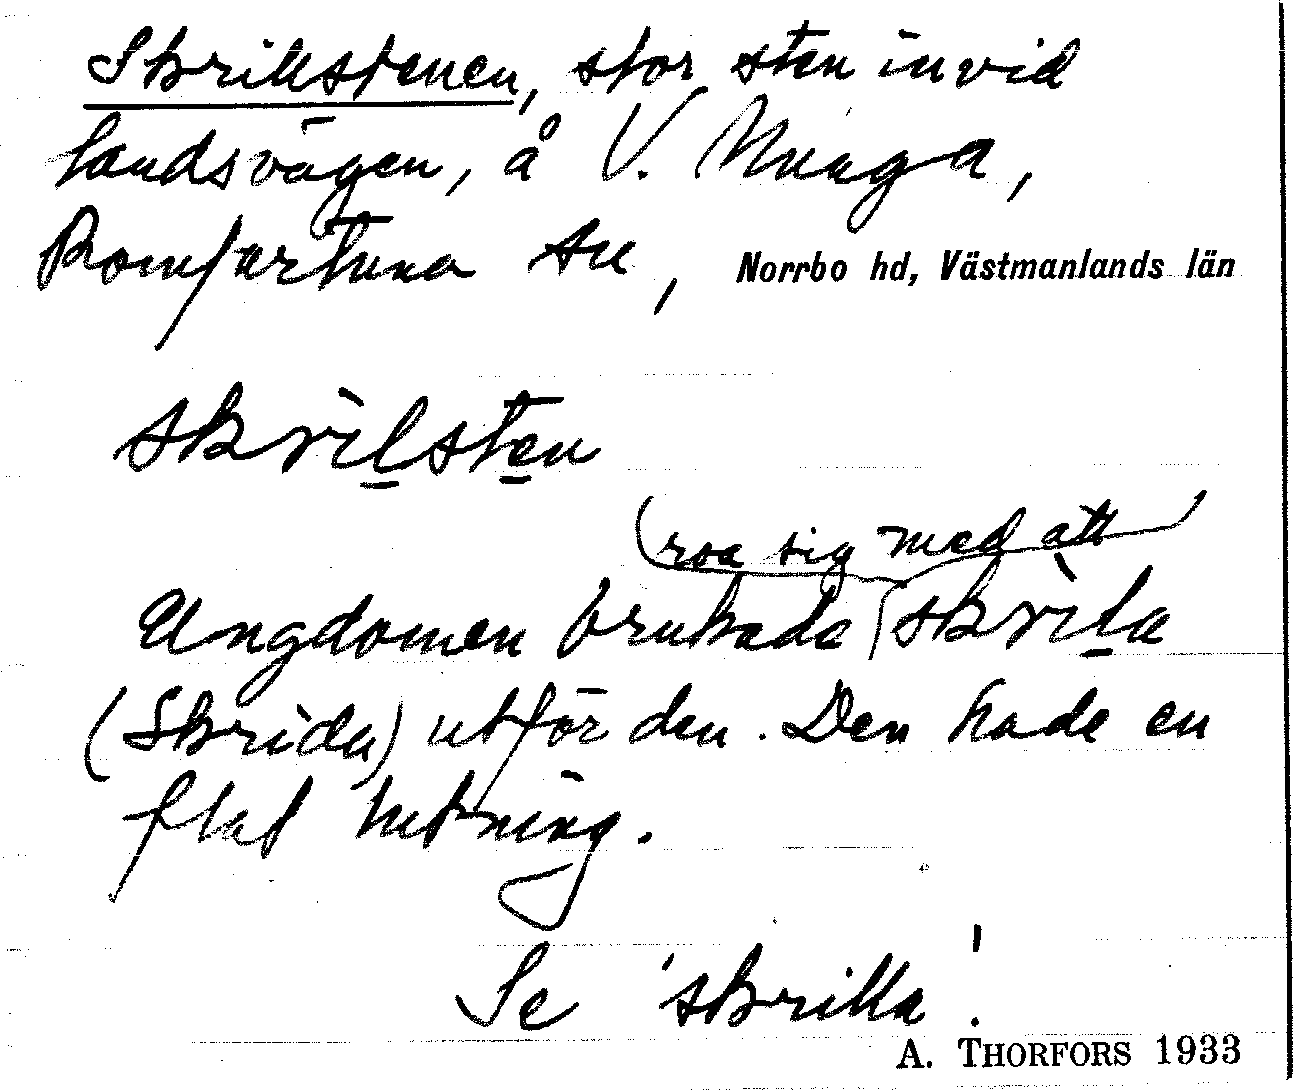 Skrillstenen, stor sten invid
landsvägen, å V. Munga,
Romfartuna sn, Norrbo hd, Västmanlands län
skrìlsten
(roa sig med att)
Ungdomen brukade skrìla
(Skrida) utför den. Den hade en
flat lutning.
Se 'skrilla'.
A. THORFORS 1933